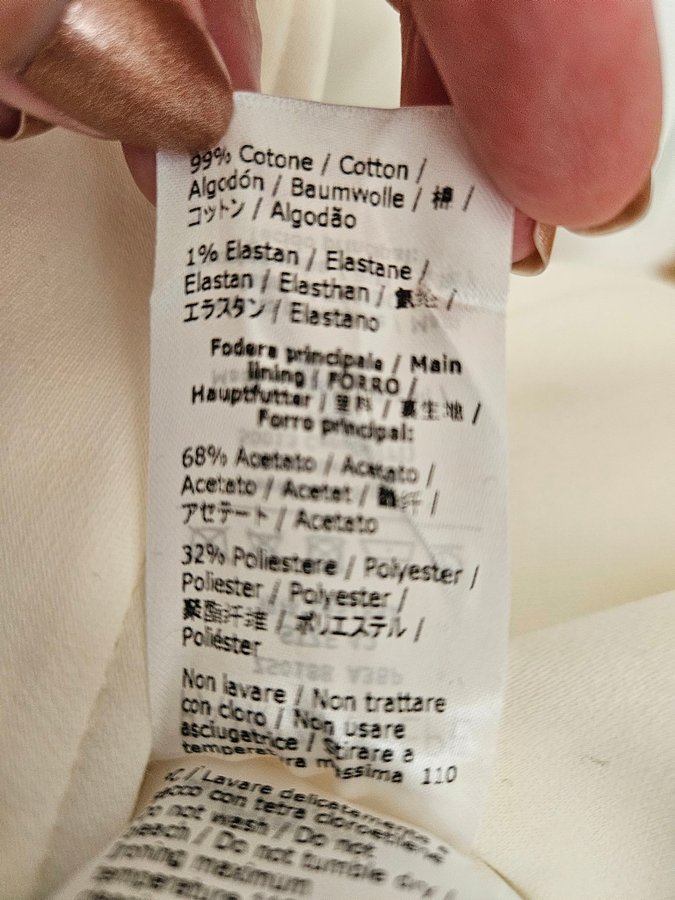 99% Cotone / Cotton /
Algodón / Baumwolle / 棉 /
コットン / Algodão
1% Elastan / Elastane /
Elastan / Elasthan / 氨纶 /
エラスタン / Elastano
Fodera principale / Main
lining / FORRO /
Hauptfutter / 里料 / 裏生地 /
Forro principal:
68% Acetato / Acetato /
Acetato / Acetat / 醋纤 /
アセテート / Acetato
32% Poliestere / Polyester /
Poliester / Polyester /
聚酯纤维 / ポリエステル /
Poliéster
Non lavare / Non trattare
con cloro / Non usare
asciugatrice / Stirare a
temperatura massima 110
°C / Lavare delicatamente a
secco con tetra cloroetilene
Do not wash / Do not
bleach / Do not tumble dry /
Ironing maximum
temperature